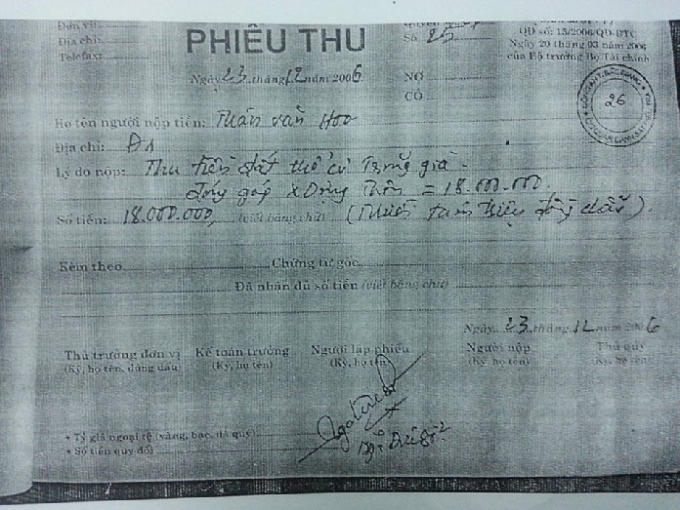 Đơn vị:
Địa chỉ:
Telefax:
PHIẾU THU
Ngày 23 tháng 12 năm 2006
Số 25
QĐ số: 15/2006/QĐ-BTC
Ngày 20 tháng 03 năm 2006
của Bộ trưởng Bộ Tài chính
NỢ
CÓ
26
Họ tên người nộp tiền: văn Hoo
Địa chỉ:
Lý do nộp: Thu tiền đất thổ cư
đóng góp = 18.000.000,
Số tiền: 18.000.000, (viết bằng chữ) ( tám triệu đồng chẵn).
Kèm theo Chứng từ gốc
Đã nhận đủ số tiền (viết bằng chữ)
Ngày 23 tháng 12 năm 2006
Thủ trưởng đơn vị Kế toán trưởng Người lập phiếu Người nộp Thủ quỹ
(Ký, họ tên, đóng dấu) (Ký, họ tên) (Ký, họ tên) (Ký, họ tên) (Ký, họ tên)
+ Tỷ giá ngoại tệ (vàng, bạc, đá quý)
+ Số tiền quy đổi